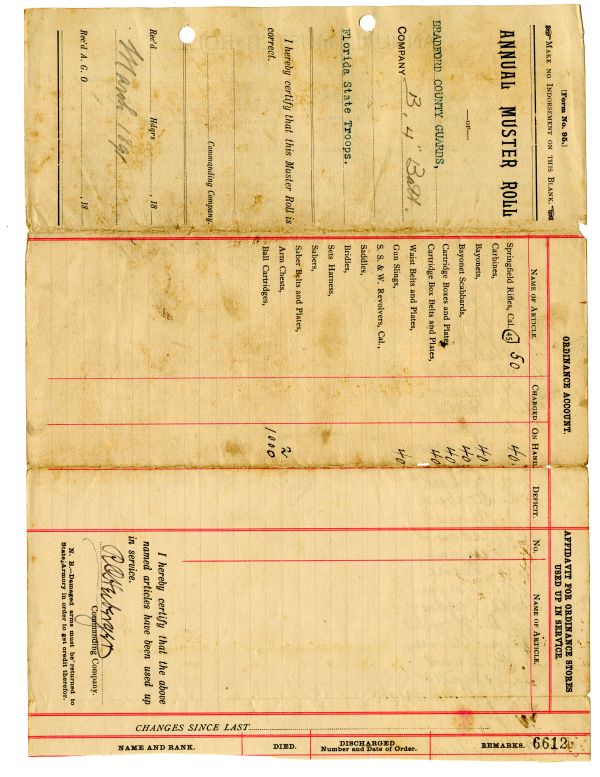 [Form No. 95.]
MAKE NO INDORSEMENT ON THIS BLANK.
ANNUAL MUSTER ROLL
—OF—
BRADFORD COUNTY GUARDS,
COMPANY B, 4" Batt.
Florida State Troops.
I hereby certify that this Muster Roll is
correct.
Commanding Company.
Rec'd Hdqrs , 18
March 189
Rec'd A. G. O. , 18
ORDINANCE ACCOUNT.
NAME OF ARTICLE. CHARGED. ON HAND. DEFICIT.
Springfield Rifles, Cal. 45 50 40
Carbines,
Bayonets, 40
Bayonet Scabbards, 40
Cartridge Boxes and Plates, 40
Cartridge Box Belts and Plates, 40
Waist Belts and Plates,
Gun Slings, 40
S. S. & W. Revolvers, Cal.,
Saddles,
Bridles,
Sets Harness,
Sabers,
Saber Belts and Plates,
Arm Chests, 2
Ball Cartridges, 1000
AFFIDAVIT FOR ORDINANCE STORES
USED UP IN SERVICE.
No. NAME OF ARTICLE.
I hereby certify that the above
named articles have been used up
in service.
Commanding Company.
N. B.—Damaged arms must be returned to
State Armory in order to get credit therefor.
CHANGES SINCE LAST
NAME AND RANK. DIED. DISCHARGED Number and Date of Order. REMARKS.
6612